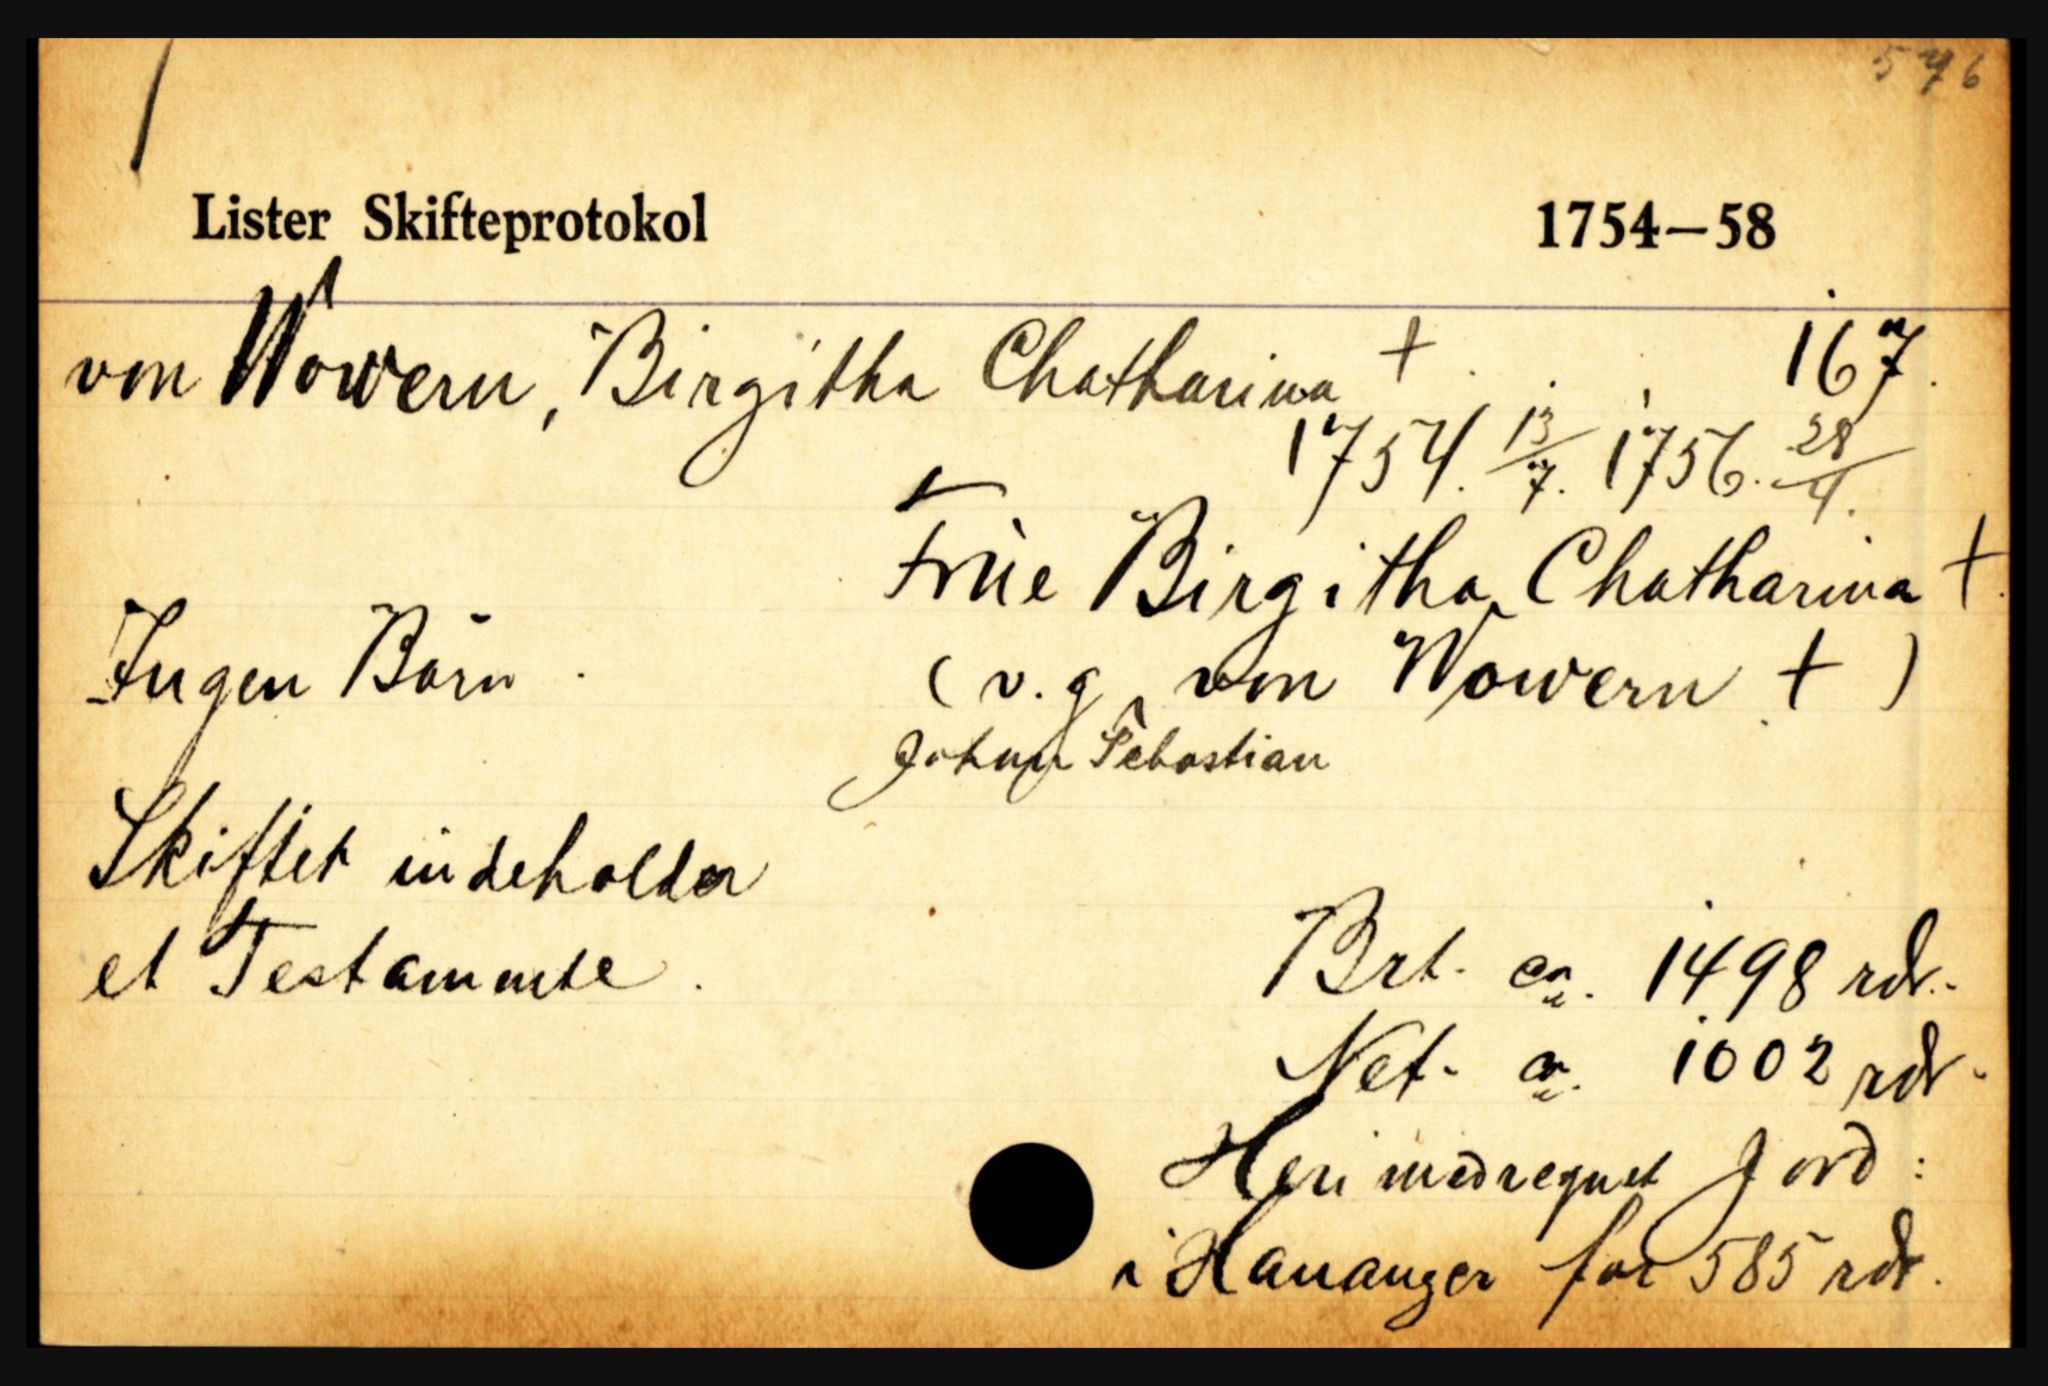 546
Lister Skifteprotokol 1754—58
von Wowern, Birgitha Chatharina † 167.
1754. 13/7. 1756. 28/4.
Frue Birgitha Chatharina †.
Ingen Börn. (v. g. von Wowern †)
Johan Sebastian
Skiftet indeholder
et Testamente.
Brt. ca. 1498 rdr.
Net. ca. 1002 rdr.
Heri medregnet Jord:
i Hananger for 585 rdr.